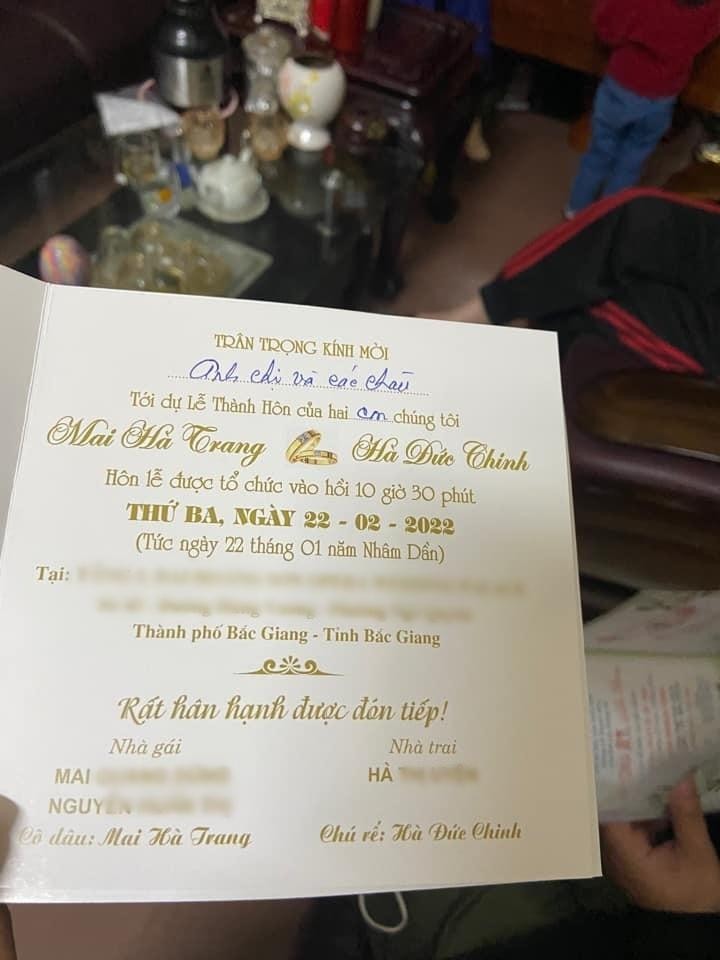 TRÂN TRỌNG KÍNH MỜI
Anh chị và các cháu
Tới dự Lễ Thành Hôn của hai con chúng tôi
Mai Hà Trang Hà Đức Chinh
Hôn lễ được tổ chức vào hồi 10 giờ 30 phút
THỨ BA, NGÀY 22 - 02 - 2022
(Tức ngày 22 tháng 01 năm Nhâm Dần)
Tại:
Thành phố Bắc Giang - Tỉnh Bắc Giang
Rất hân hạnh được đón tiếp!
Nhà gái Nhà trai
MAI HÀ
Cô dâu: Mai Hà Trang Chú rể: Hà Đức Chinh